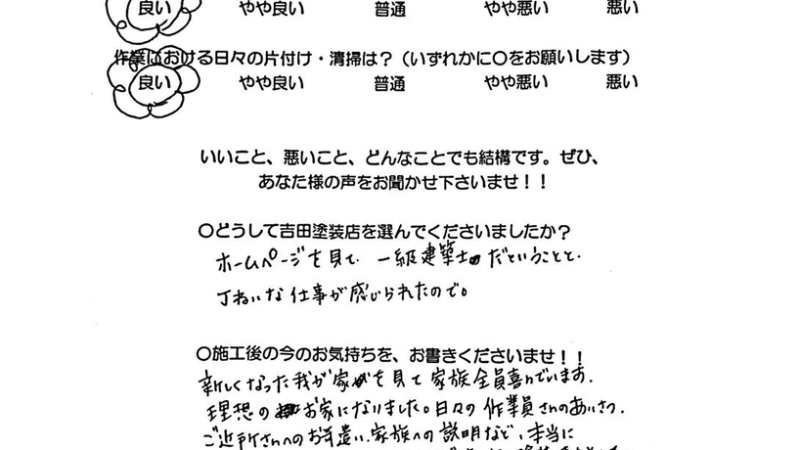 良い やや良い 普通 やや悪い 悪い
作業における日々の片付け・清掃は？（いずれかに〇をお願いします）
良い やや良い 普通 やや悪い 悪い
いいこと、悪いこと、どんなことでも結構です。ぜひ、
あなた様の声をお聞かせ下さいませ！！
〇どうして吉田塗装店を選んでくださいましたか？
ホームページを見て、一級建築士だということと、
丁ねいな仕事が感じられたので。
〇施工後の今のお気持ちを、お書きくださいませ！！
新しくなった我が家を見て家族全員喜んでいます。
理想のお家になりました。日々の作業員さんのあいさつ、
ご近所さんへのお気遣い、家族への説明など、本当に